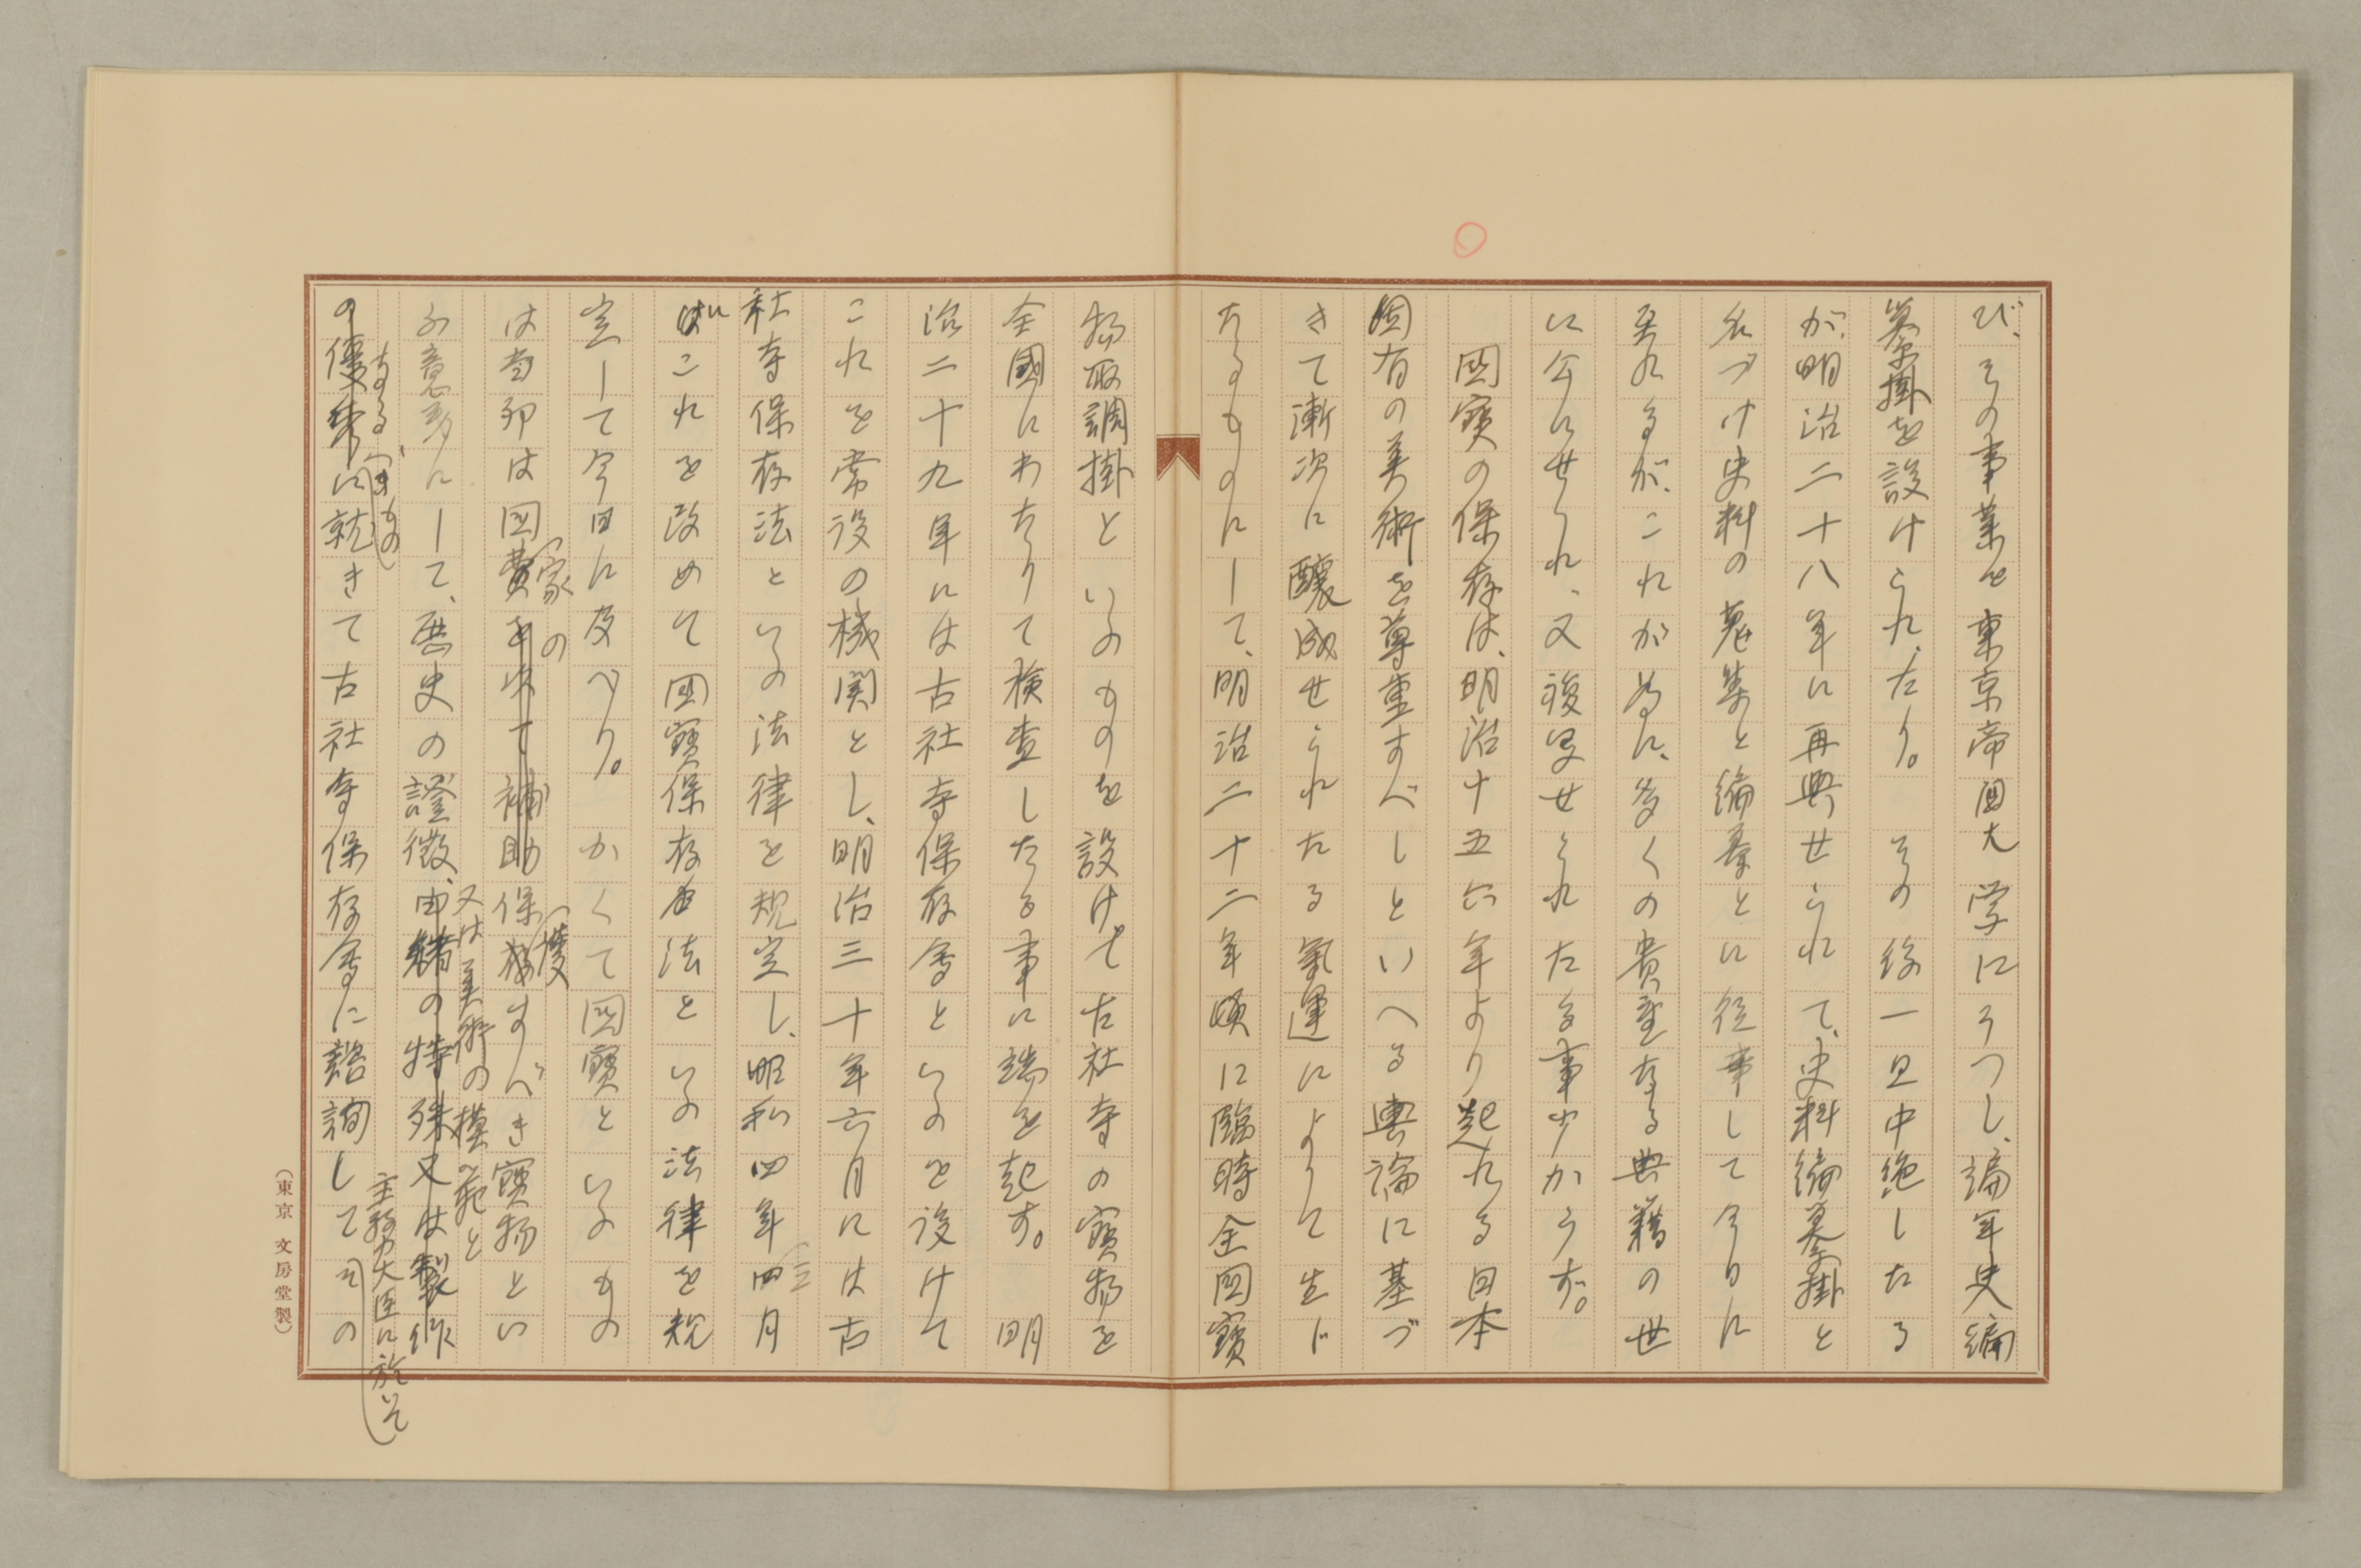 び、その事業を東京帝国大学にうつし、編年史編
纂掛を設けられたり。その後一旦中絶したる
が、明治二十八年に再興せられて、史料編纂掛と
名づけ史料の蒐集と編纂とに従事して今日に
至れるが、これが為に、多くの貴重なる典籍の世
に公にせられ、又複写せられたる事少からず。
国寶の保存は、明治十五六年より起れる日本
固有の美術を尊重すべしといへる輿論に基づ
きて漸次に醸成せられたる氣運によりて生じ
たるものにして、明治二十二年頃に臨時全国寶
物取調掛といふものを設けて古社寺の寶物を
全國にわたりて検査したる事に端を起す。明
治二十九年には古社寺保存會といふを設けて
これを常設の機関とし、明治三十年六月には古
社寺保存法といふ法律を規定し、昭和四年四月
三
にはこれを改めて国寶保存法といふ法律を規
定して今日に及べり。かくて国寶といふもの
は即は国費を以て補助保存すべき寶物とい
家の
護
ふ意義にして、歴史の證徴、由緒の特殊又は製作
又は美術の模範と
の優秀に就きて古社寺保存會に諮詢してその
なるべきもの
主務大臣に於て
(東京 文房堂製)